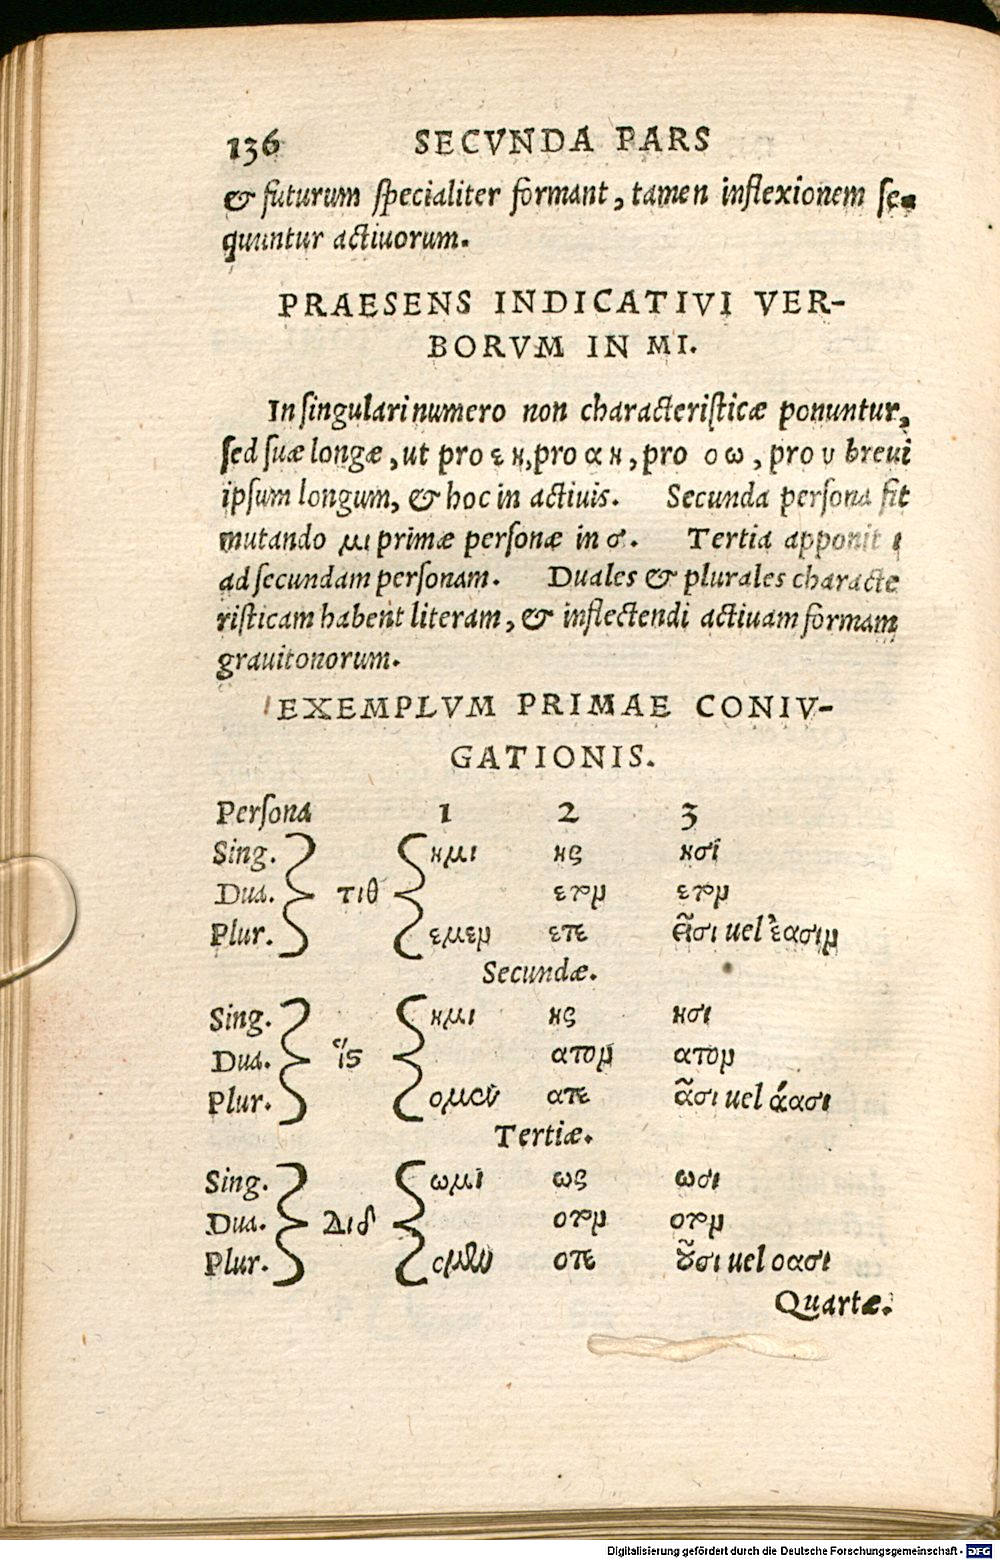 136 SECVNDA PARS
& futurum specialiter formant, tamen inflexionem se-
quuntur actiuorum.
PRAESENS INDICATIVI VER-
BORVM IN MI.
In singulari numero non characteristicæ ponuntur,
sed suæ longæ, ut pro ε η, pro α η, pro ο ω, pro υ breui
ipsum longum, & hoc in actiuis. Secunda persona fit
mutando μι primæ personæ in σ. Tertia apponit ι
ad secundam personam. Duales & plurales characte
risticam habent literam, & inflectendi actiuam formam
grauitonorum.
EXEMPLVM PRIMAE CONIV-
GATIONIS.
Persona 1 2 3
Sing. ημι ης ησι
Dua. τιθ ετομ ετομ
Plur. εμεμ ετε εῖσι uel έασιμ
Secundæ.
Sing. ημι ης ησι
Dua. ἵϛ ατομ ατομ
Plur. ομεν ατε ᾶσι uel άασι
Tertiæ.
Sing. ωμι ως ωσι
Dua. Διδ οτομ οτομ
Plur. ομεν οτε οῦσι uel οασι
Quartæ.
Digitalisierung gefördert durch die Deutsche Forschungsgemeinschaft - DFG